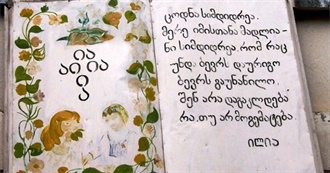 ია
აი ია
ი
ა
ცოდნა სიმდიდრეა.
მერე იმისთანა მადლია-
ნი სიმდიდრე, რომ რაც
უნდ ბევრს დაურიგო
ბევრს გაუნაწილო,
შენ არა დაგაკლდება
რა, თუ არ მოგემატება.
ილია